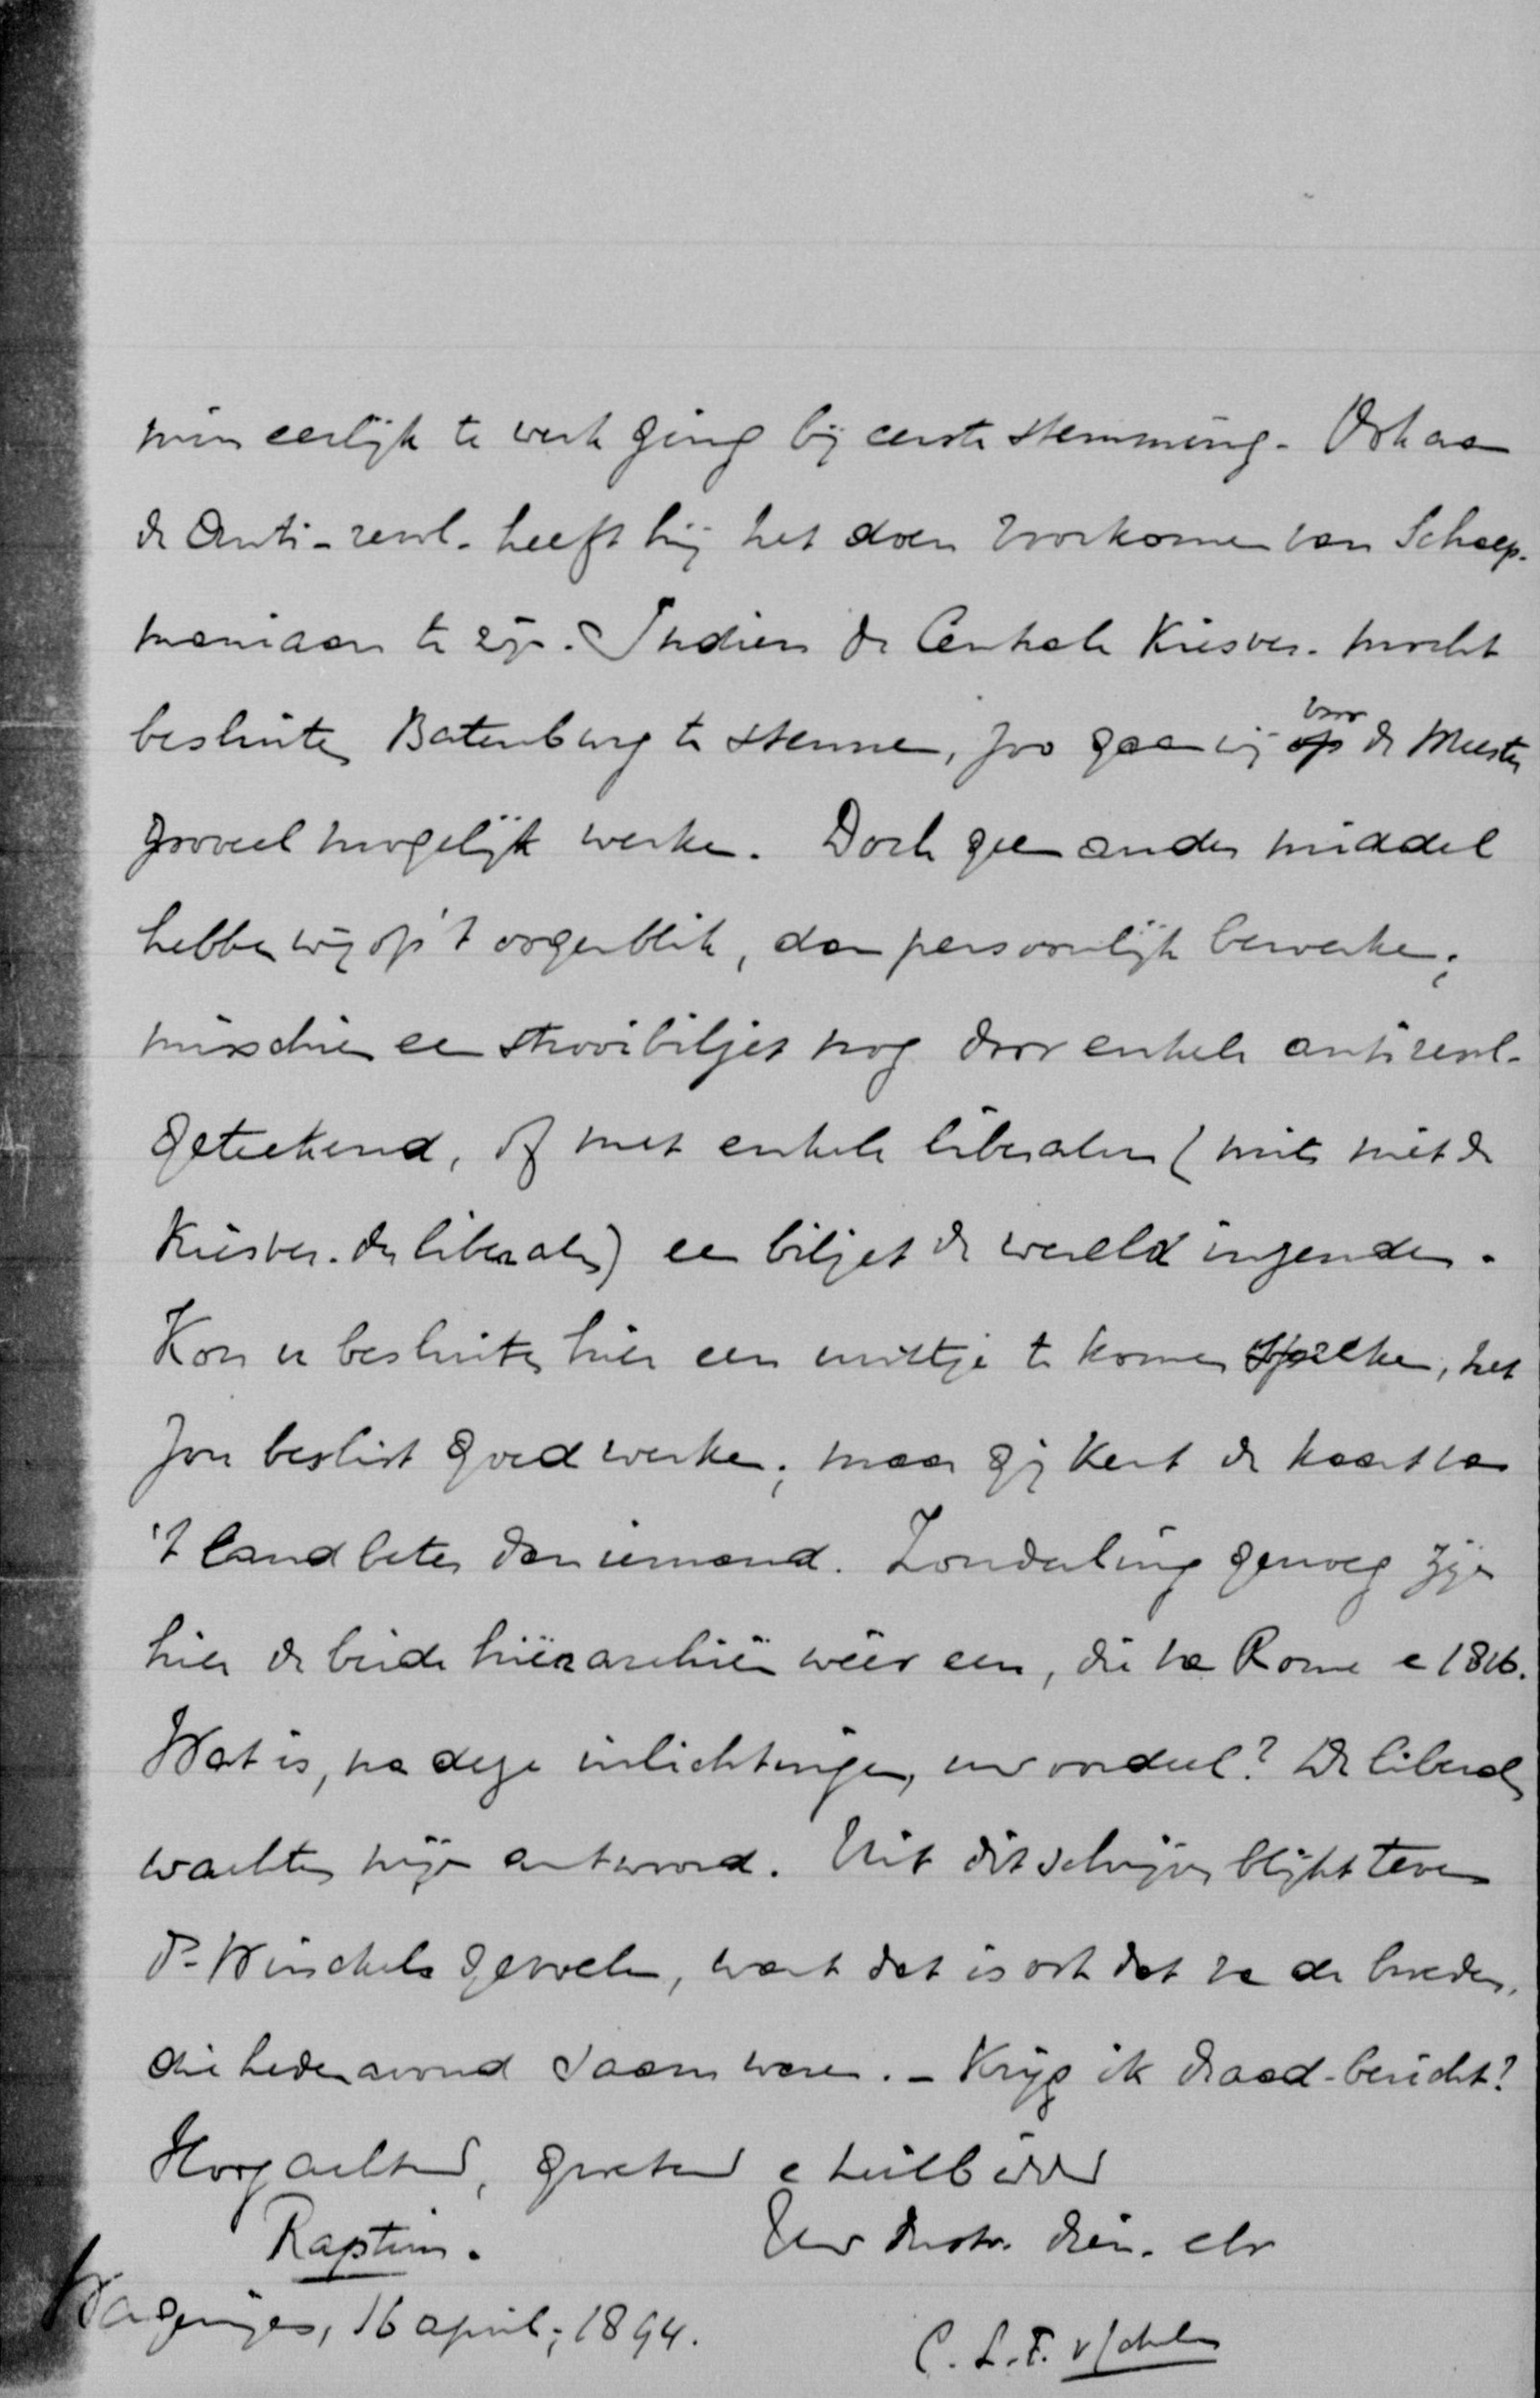 min eerlijk te werk ging bij eerste stemming. Ook aan
de Anti-revol. heeft hij het doen voorkomen van Schaep-
maniaan te zijn. Indien de Centrale Kiesver. mocht
besluiten Batenburg te stemmen, zoo gaan wij voor de Meester
zooveel mogelijk werken. Doch geen ander middel
hebben wij op 't oogenblik, dan persoonlijk bewerken;
misschien een strooibiljet nog door enkele antirevol.
geteekend, of met enkele liberalen (mits niet de
Kiesver. der liberalen) een biljet de wereld inzenden.
Kon u besluiten hier een uurtje te komen spreken, het
zou beslist goed werken; maar gij kent de kaart van
't land beter dan iemand. Zonderling genoeg zijn
hier de beide hiërarchiën wéér een, die van Rome en 1816.
Wat is, na deze inlichtingen, uw oordeel? De liberalen
wachten mijn antwoord. Uit dit schrijven blijkt tevens
Ds Winckels gevoelen, want dat is ook dat van de broeders,
die hedenavond saam waren. - Krijg ik draad-bericht?
Hoogachtend, groetend en heilbiddend
Raptim. Uw dienstw. dien. en br
Wageningen, 16 april, 1894. C. L. F. v Schelven